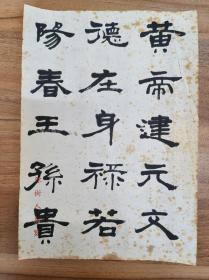 黄帝建元文
德在身禄若
陽春王孫貴